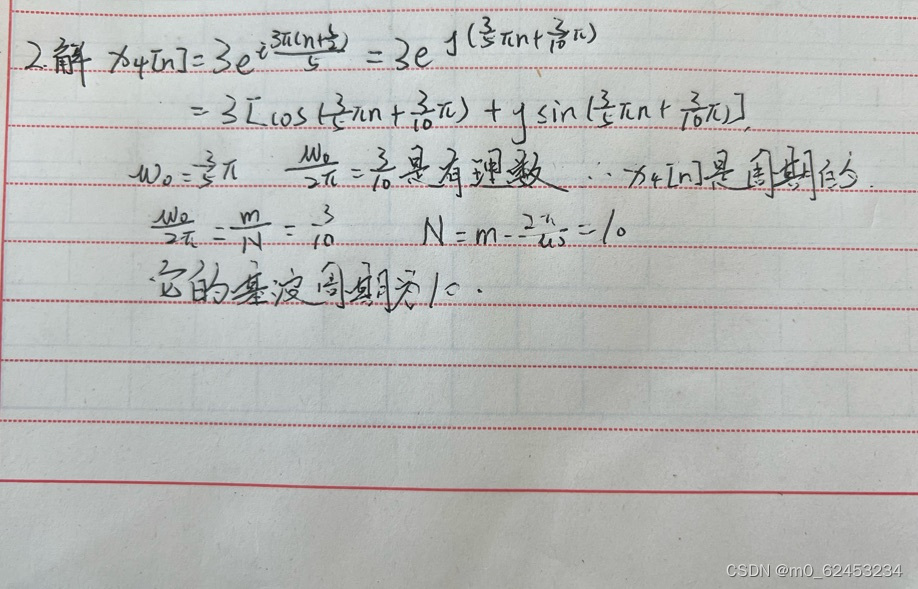 2.解 x₄[n]=3e^{j\frac{3π(n+\frac{1}{2})}{5}} = 3e^{j(\frac{3}{5}πn+\frac{3}{10}π)}
= 3[cos(\frac{3}{5}πn+\frac{3}{10}π) + j sin(\frac{3}{5}πn+\frac{3}{10}π)],
ω₀=\frac{3}{5}π \frac{ω₀}{2π}=\frac{3}{10}是有理数 ∴ x₄[n]是周期的.
\frac{ω₀}{2π}=\frac{m}{N}=\frac{3}{10} N=m·\frac{2π}{ω₀}=10
它的基波周期为10.
CSDN @m0_62453234